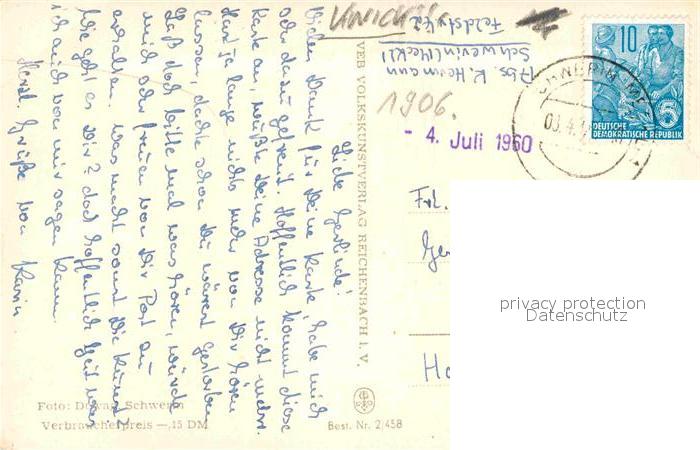 Liebe Gerlinde!
Vielen Dank für Deine Karte, habe mich
sehr dazu gefreut. Hoffentlich kommt diese
Karte an, wußte Deine Adresse nicht mehr.
Hast ja lange nichts mehr von Dir hören
lassen, dachte schon Du wärest gestorben
Laß doch bitte mal was hören, würde
mich sehr freuen von Dir Post zu
erhalten. Was macht sonst die Kunst?
Wie geht es Dir? doch hoffentlich gut was
ich auch von mir sagen kann.
Herzl. Grüße von Karin
Foto: Schwerin
Verbraucherpreis —,15 DM
VEB VOLKSKUNSTVERLAG REICHENBACH I. V.
Best. Nr. 2/458
Abs. K. Hermann
Schwerin (Meckl)
1906.
- 4. Juli 1960
10
DEUTSCHE
DEMOKRATISCHE REPUBLIK
5
Frl.
Ger
Ha
privacy protection
Datenschutz